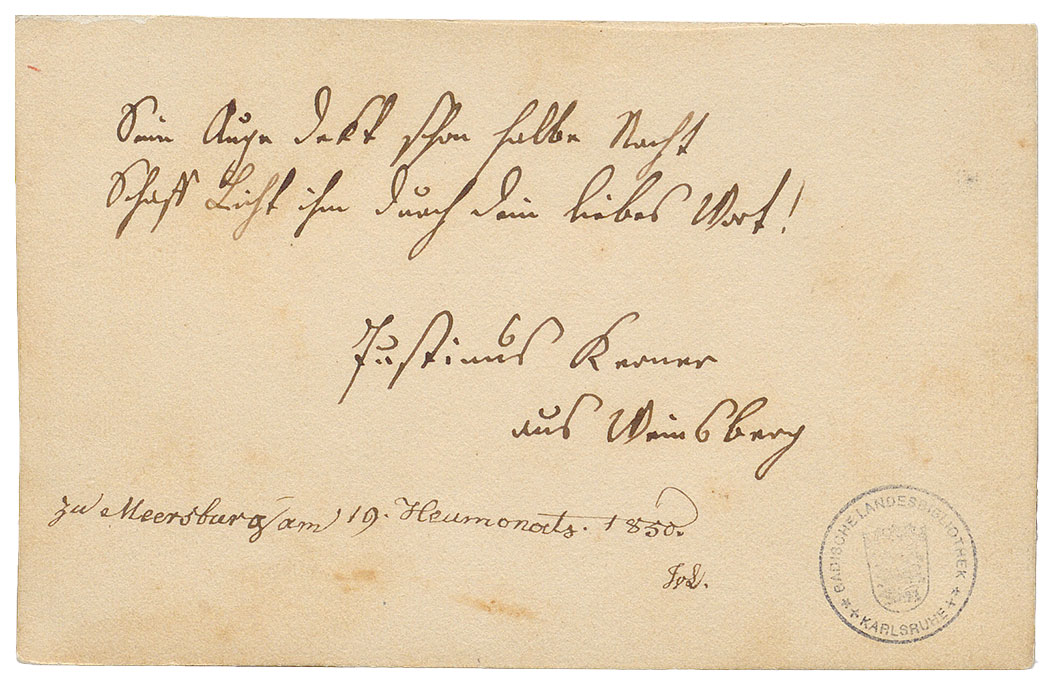 Sein Auge dekt schon halbe Nacht
Schaff Licht ihm durch dein liebes Wort!
Justinus Kerner
aus Weinsberg
zu Meersburg am 19. Heumonats. 1850.
BADISCHE LANDESBIBLIOTHEK
KARLSRUHE